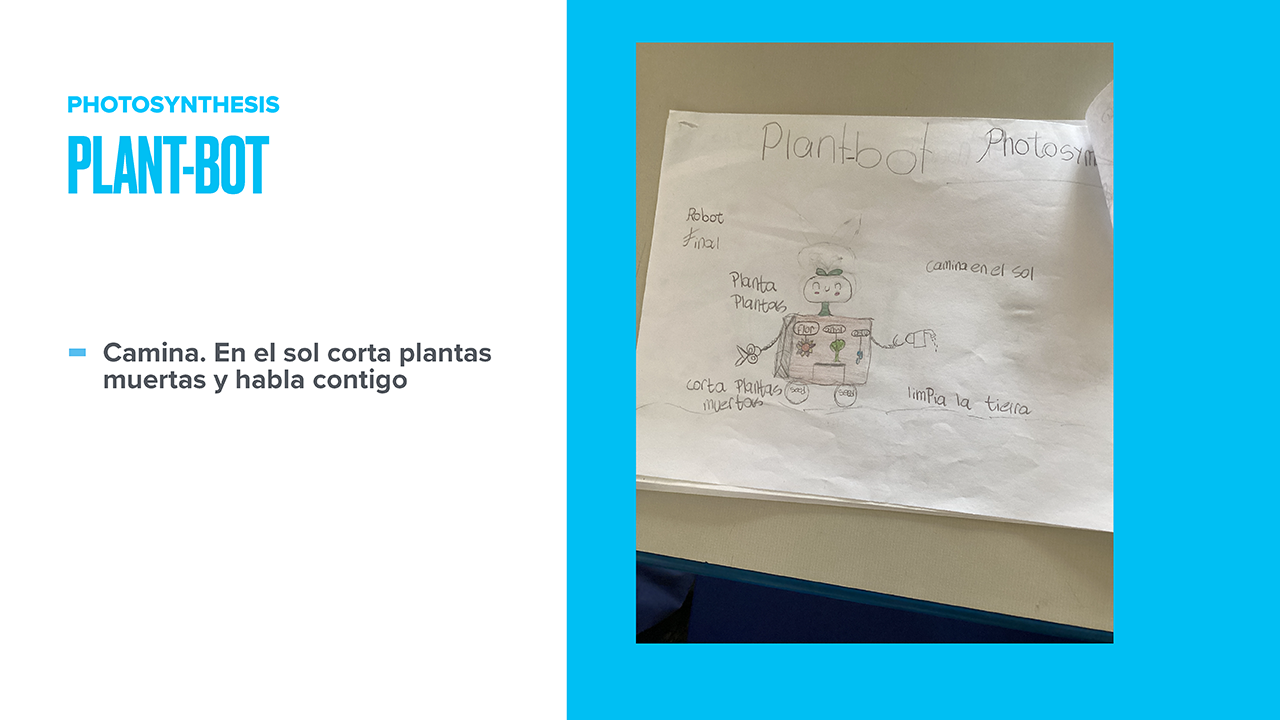 PHOTOSYNTHESIS
PLANT-BOT
Camina. En el sol corta plantas
muertas y habla contigo
Plant-bot
Photosyn
Robot
final
Planta
Plantas
camina en el sol
Flor
corta plantas
muertas
limpia la tierra